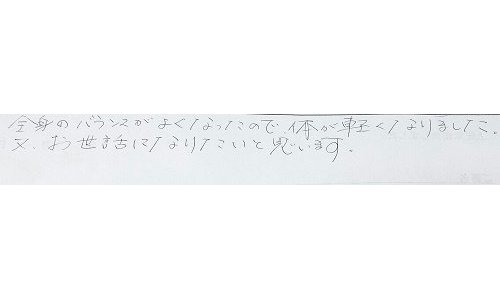 全身のバランスがよくなったので、体が軽くなりました。
又、お世話になりたいと思います。